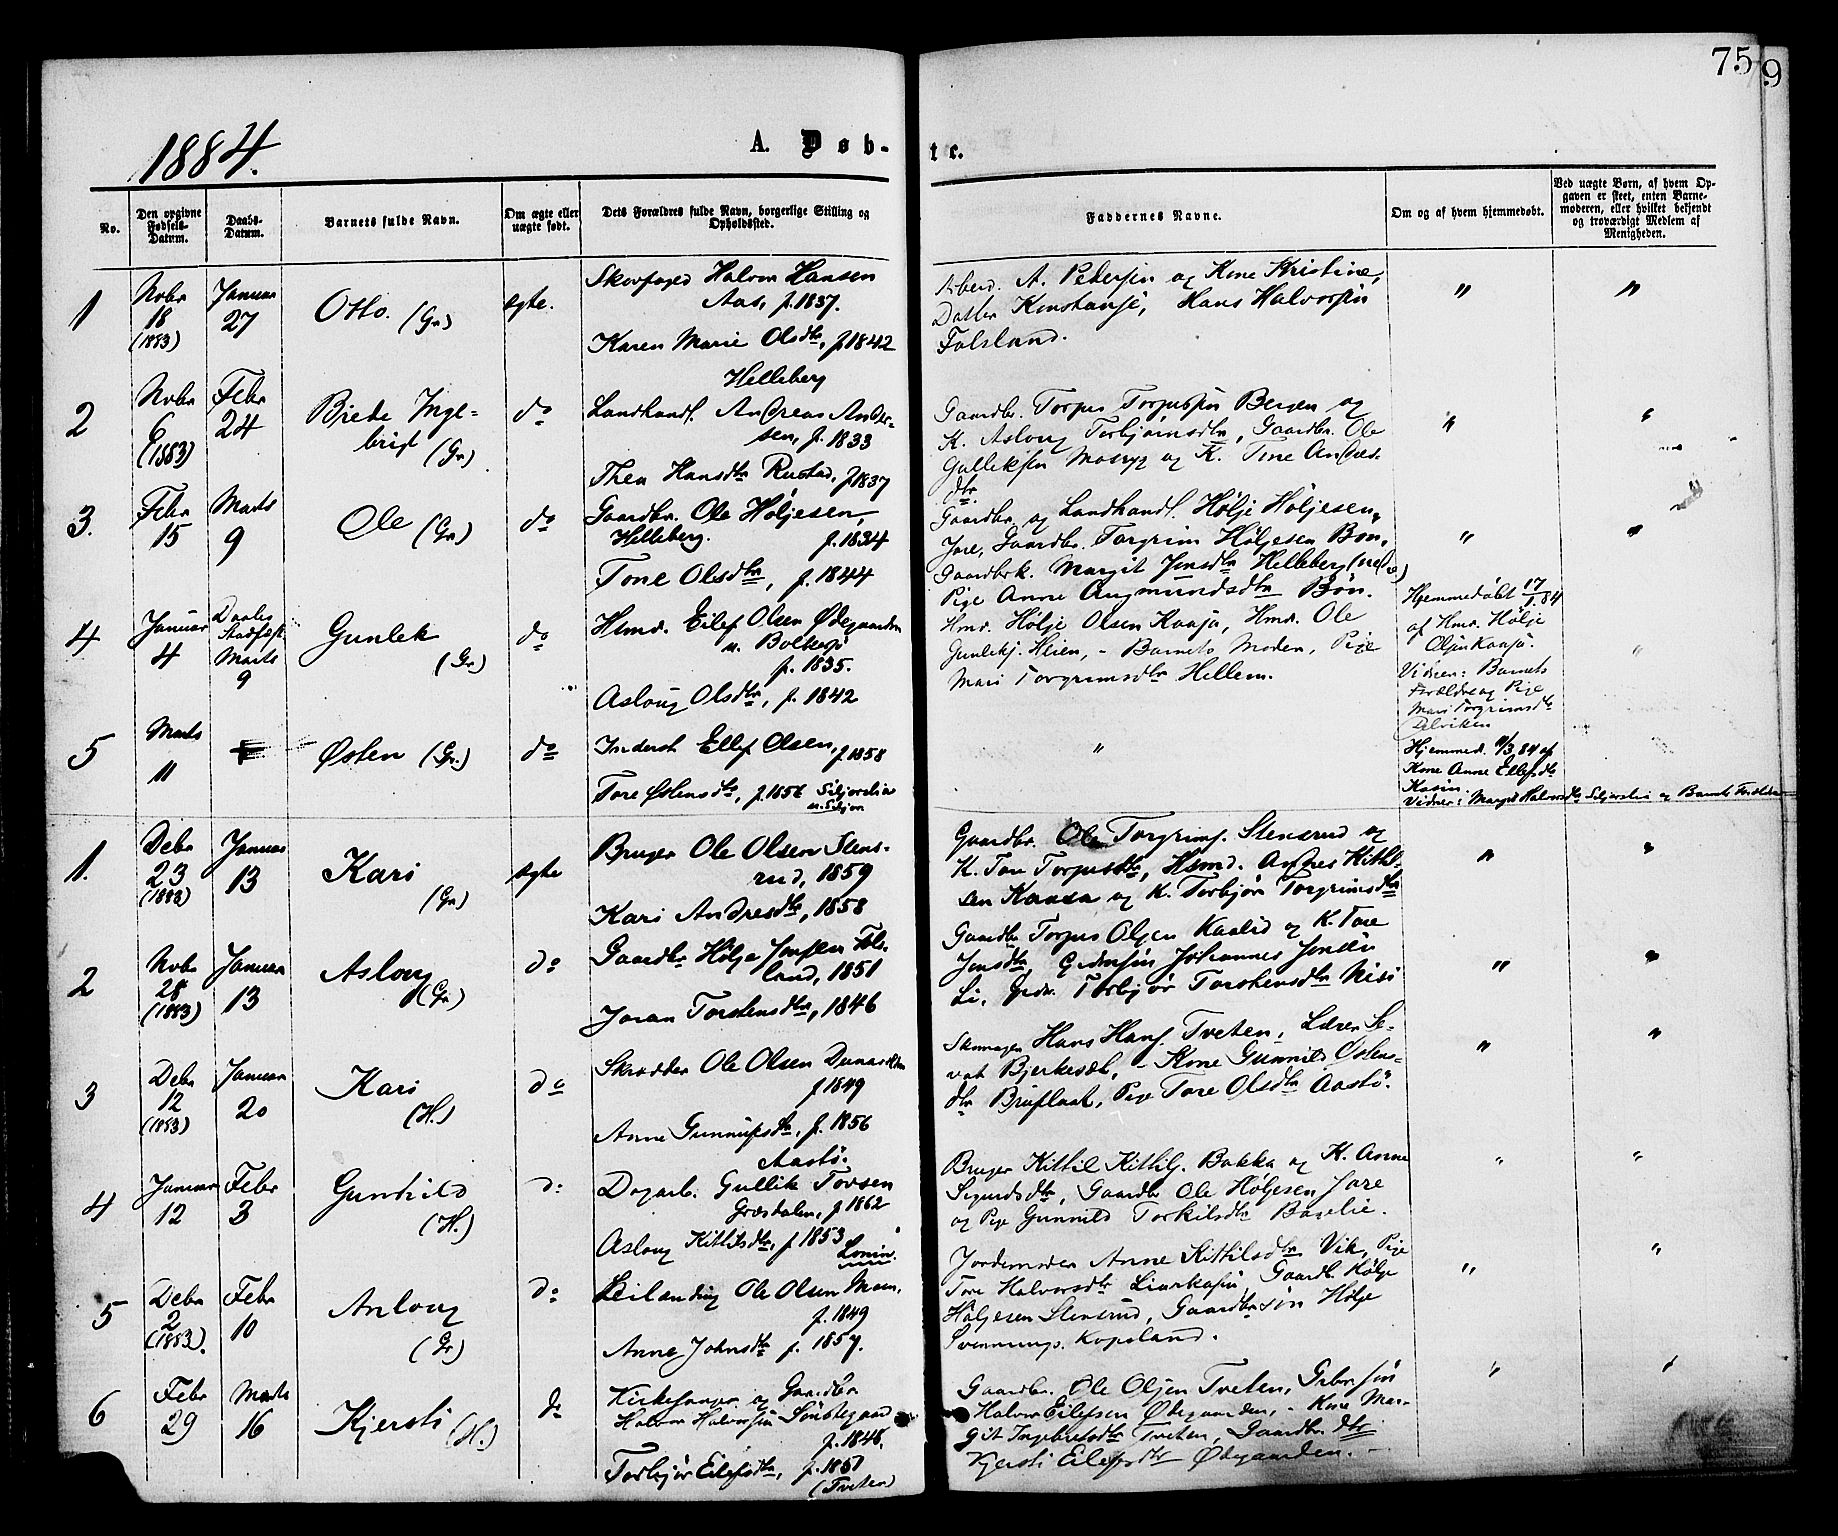 75
9
1884.
A. Døb-
te.
No.
Den opgivne
Fødsels-
Datum.
Daabs-
Datum.
Barnets fulde Navn.
Om ægte eller
uægte født.
Dets Forældres fulde Navn, borgerlige Stilling og
Opholdssted.
Faddernes Navne.
Om og af hvem hjemmedøbt.
Ved uægte Børn, af hvem Op-
gaven er skeet, enten Barne-
moderen, eller hvilket bekjendt
og troværdigt Medlem af
Menigheden.
1
Novbr
18
(1883)
Januar
27
Otto. (Gr)
ægte.
Skovfoged Halvor Hansen
Aas, f. 1837.
Karen Marie Olsdtr, f 1842
A. Pedersen og Kone Kristine,
Datter Konstanse, Hans Halvorsen
Folsland.
"
"
2
Novbr
6
(1883)
Febr
24
Brede Inge-
brigt (Gr)
do
Helleberg
Landhandl. Andreas Ander-
sen, f. 1833
Thea Hansdtr Rustad, f 1837
Gaardbr. Torjus Torjussen Bergen og
K. Asloug Torbjørnsdtr, Gaardbr. Ole
Gulleksen og K. Tine Andrea
dtr.
"
"
3.
Febr
15
Marts
9
Ole (Gr)
do
Gaardbr. Ole Høljesen,
Helleberg. f. 1834
Tone Olsdtr, f. 1844
Gaardbr. og Landhandl. Hølje Høljesen,
Jore, Gaardbr. Torgrim Høljesen Bøn,
Gaardbrk. Margit Jonsdtr Helleberg (nedre)
Pige Anne Augmundsdtr Bøn.
"
"
4
Januar
4
Daabs
Stadfæst
Marts
9
Gunlek
(Gr)
do
Hsmd. Eilef Olsen Ødegaarden
u. Bolkesjø
f. 1835.
Asloug Olsdtr, f. 1842
Hmd. Hølje Olsen Kaasa, Hmd. Ole
Gunlekj. Heien, - Barnets Moder, Pige
Mari Torgrimsdtr Hellem.
Hjemmedøbt 17/1 84
af Hmd. Hølje
Olsen Kaasa.
Vidner: Barnets
Forældre og Pige
Mari Torgrimsdtr
"
5
Marts
11
Østen (Gr.)
do
Inderst Ellef Olsen, f 1858
Tore Østensdtr, f. 1856 Siljordlia
u. Siljor
"
Hjemmed. 11/3 84 af
Kone Anne Ellefsdtr
Kasin
Vidner: Margit Halvorsdtr Siljordlia og Barnets Forældre
1.
Debr
23
(1883)
Januar
13
Kari
(Gr)
ægte
Bruger Ole Olsen Stens-
rud, 1859
Kari Andresdtr, 1858
Gaardbr. Ole Torgrims. Stensrud og
K. Tore Torjusdtr, Hsmd. Andres Kittil-
sen Kaasa og K. Torbjør Torgrimsdtr
"
"
2
Novbr
28
(1883)
Januar
13
Asloug
(Gr)
do
Gaardbr Hølje Jonssen Fols-
land, 1851
Joran Torstensdtr, 1846
Gaardbr Torjus Olsen Kaalid og K. Tore
Jonsdtr, Grdmsøn Johannes Jonsen
Li, Grdr. Torbjør Torstensdtr Nisi
"
"
3
Debr
12
(1883)
Januar
20
Kari
(H.)
do
Skrædder Ole Olsen
f 1849
Anne Gunnufsdtr, f. 1856
Aastø.
Skomager Hans Hans. Tveten, Lærer Se-
vat Bjerkesæt, - Kone Gunnild Østens-
dtr Bruflaat, Pige Tore Olsdtr Aastø.
"
"
4
Januar
12
Febr
3
Gunhild
(H.)
do
Dagarb. Gullik Tovsen
Græsdalen, f 1862
Asloug Kittilsdtr, f 1853
Lonin.
Bruger Kittil Kittils. Bakka og K. Anne
Sigurdsdtr, Gaardbr Ole Høljesen Jore
og Pige Gunnild Torkilsdtr Baselie.
"
"
5
Debr
2
(1883).
Febr
10
Anloug
(Gr)
do
Leilending Ole Olsen Moen,
f. 1849
Anne Johnsdtr f. 1857.
Jordemoder Anne Kittilsdtr Vik, Pige
Tore Halvorsdtr, Gaardb. Hølje
Høljesen Stensrud, Gaardbrsøn Hølje
Svennungs. Kopsland.
"
"
6
Febr
29
Marts
16
Kjersti (H.)
do
Kirkesanger og Gaardbr
Halvor Halvorsen Sønstegaard
f. 1848.
Torbjør Eilefsdtr, f. 1851
(Tveten)
Gaardbr. Ole Olsen Tveten, Grbr søn
Halvor Eilefsen Ødegaarden, - Kone Mar-
git Ingebretsdtr Tveten, Gaardbr. dtr
Kjersti Eilefsdtr Ødegaarden. -
"
"